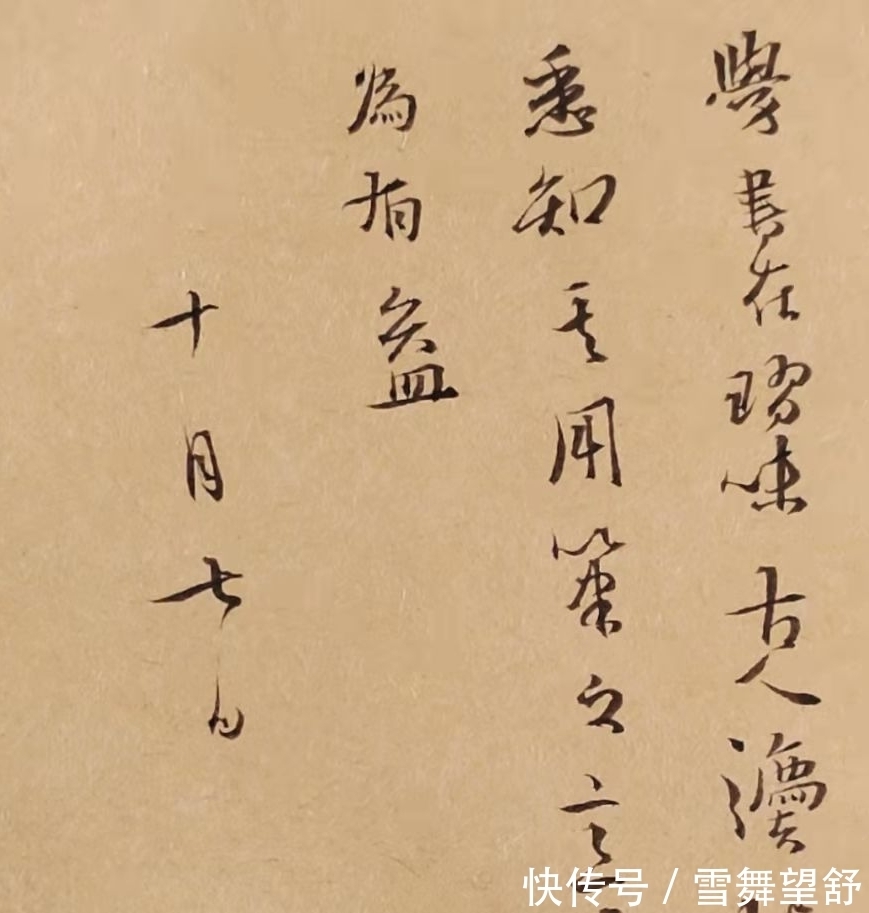 學書在玩味古人法
悉知其用筆之意
為有益
十月七日
快传号 / 雪舞望舒